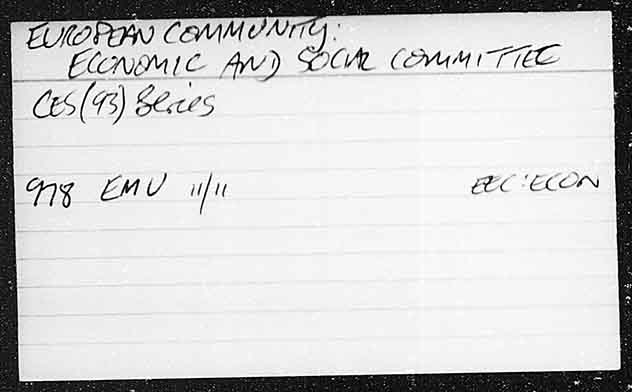 EUROPEAN COMMUNITY:
ECONOMIC AND SOCIAL COMMITTEE
CES(93) Series
978 EMU 11/11 EEC:ECON